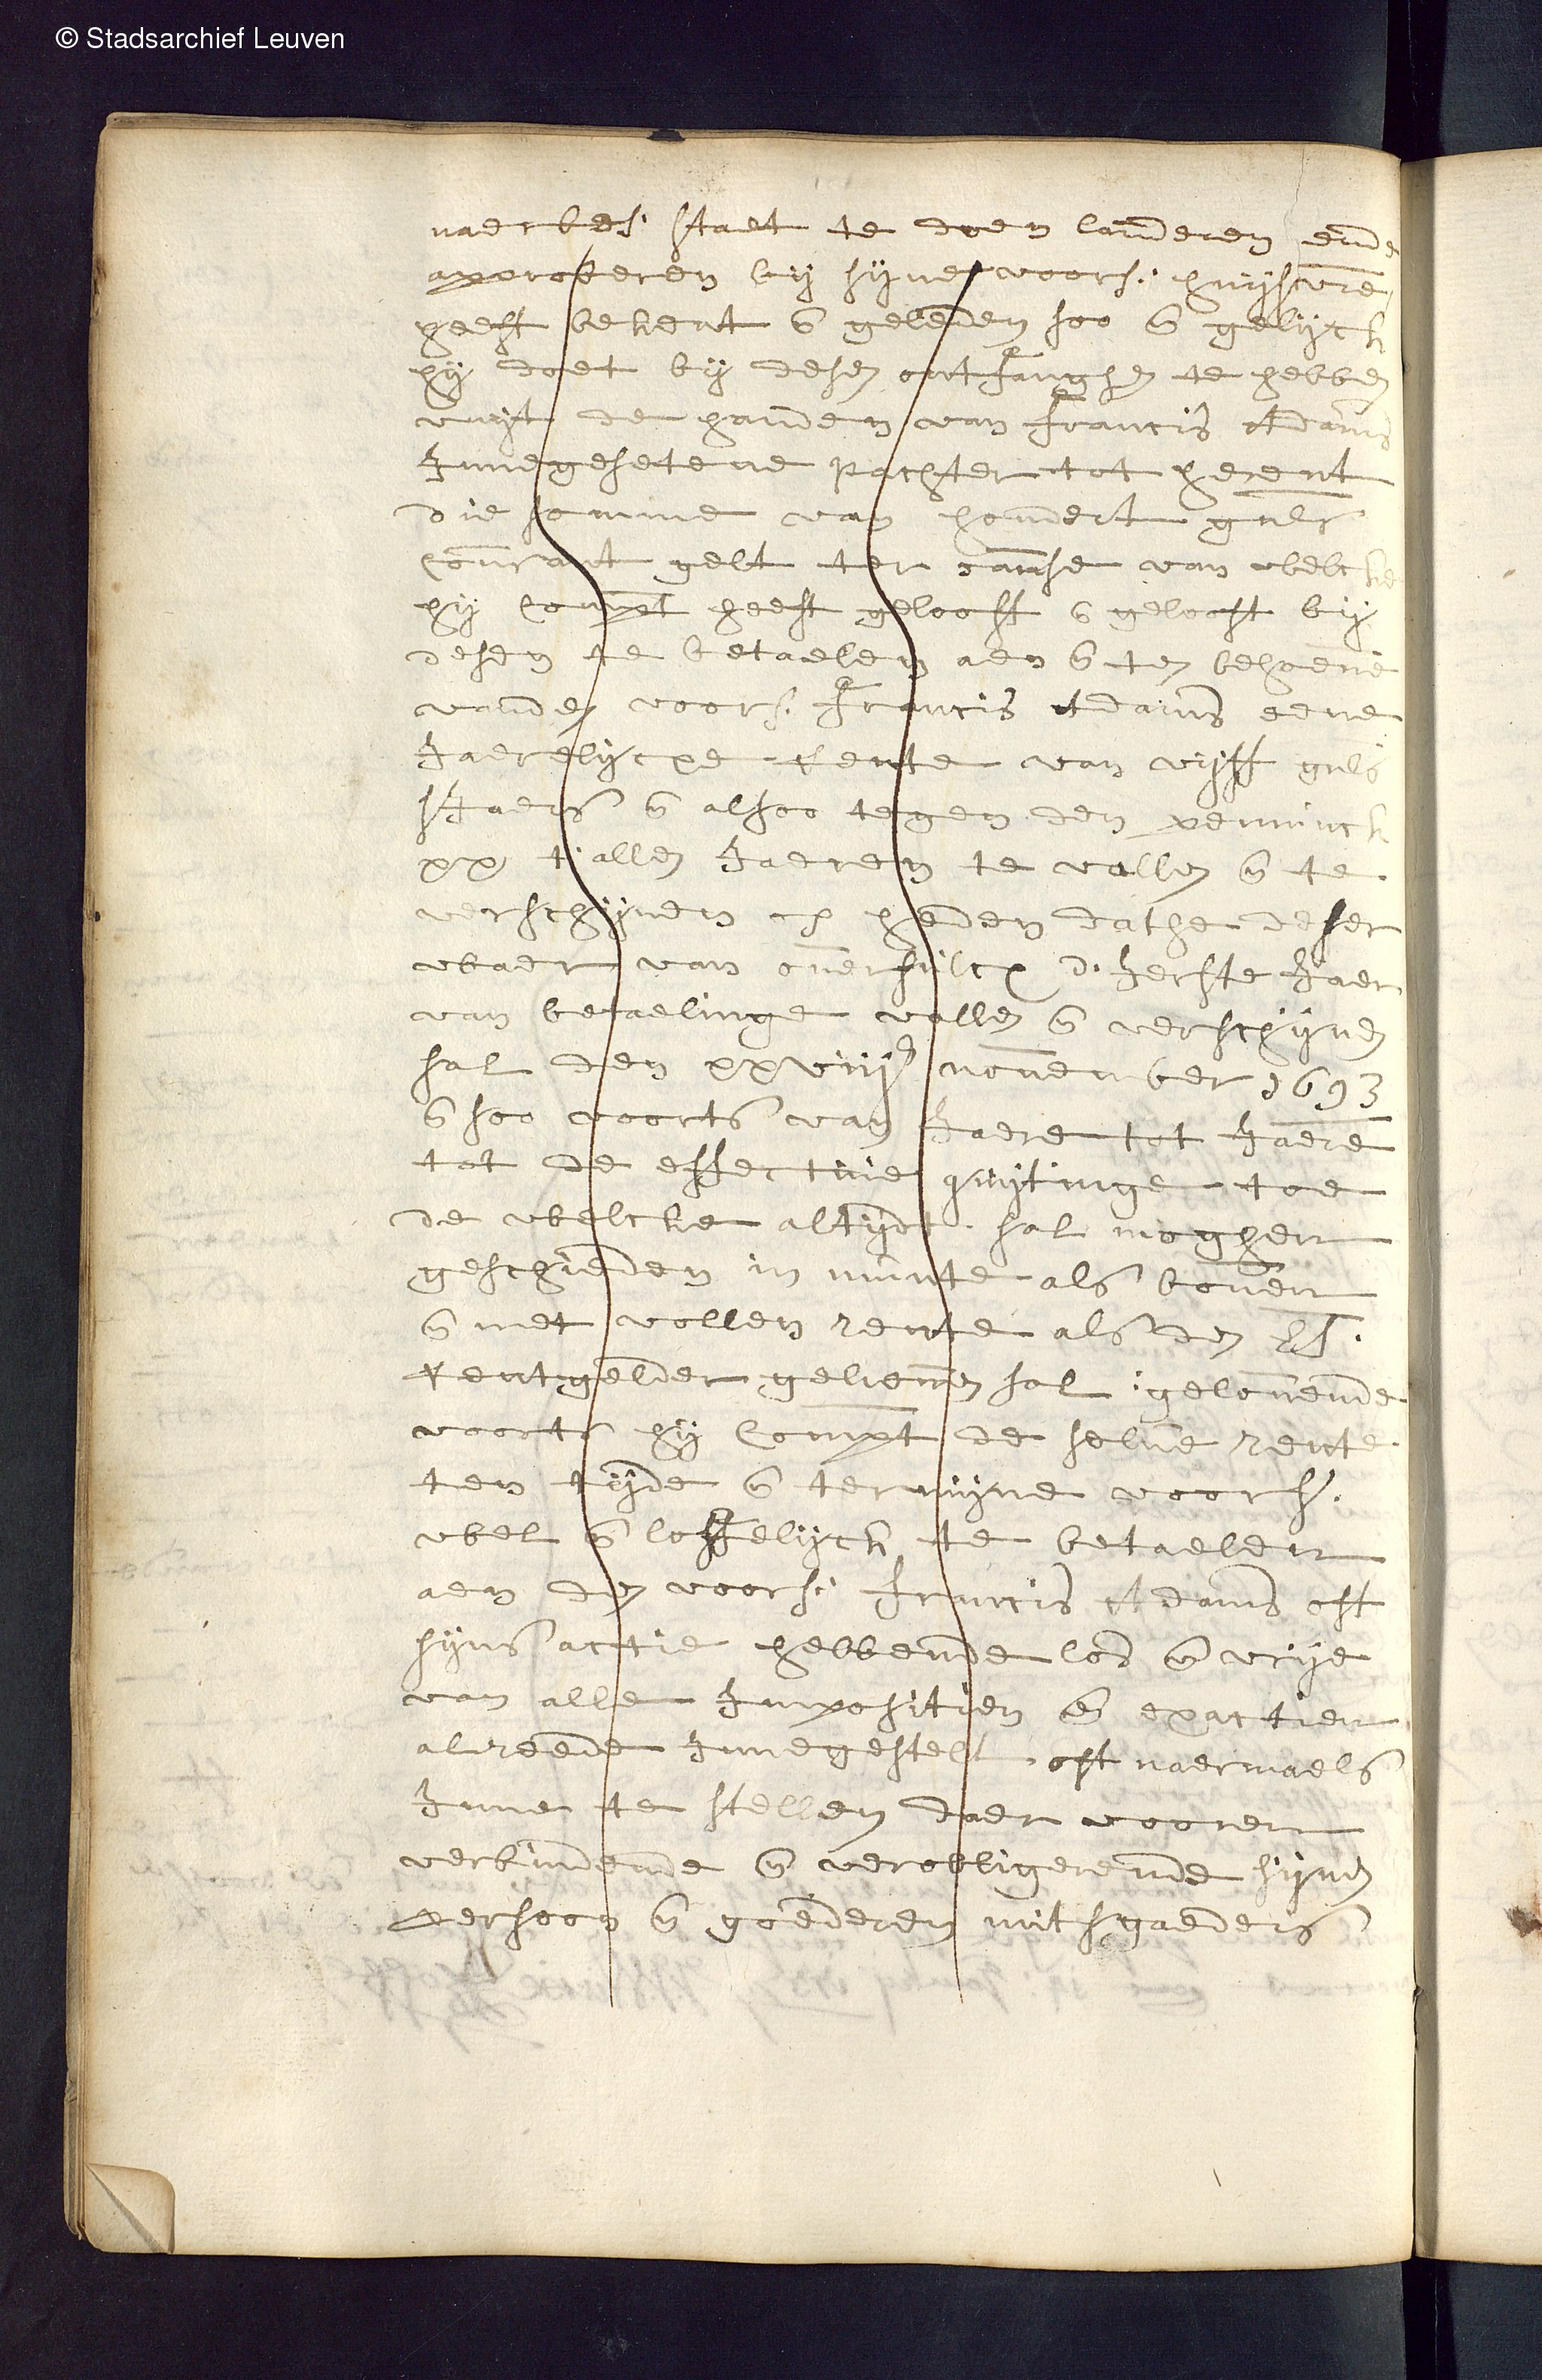 © Stadsarchief Leuven
naerbes. staet te doen lauderen ende
approberen bij sijne voors. huijsvre
heeft bekent en geleden soo en gelijck
hij doet bij desen ontfanghen te hebben
vuijt de handen van Francis Adams
Innegesetene pachter tot herent
die somme van hondert guls
courant gelt ter causse van welcke
hij Compt heeft gelooft en gelooft bij
desen te betaelen aen en ten behoeve
vanden voors. Francis Adams eene
Jaerelijcxe Rente van vijff guls
sJaers en alsoo tegen den penninck
xx t'allen Jaeren te vallen en te
verschijnen op heden dathe deser
waer van oversulcx d'Ierste Jaer
van betaelinge vallen en verschijnen
sal den xxviij november 1693
en soo voorts van Jaere tot Jaere
tot de effective quijtinge toe
de welcke altijdt sal moghen
geschieden in munte als boven
en met vollen rente als den
Rentgelder gelieven sal gelovende
voorts hij Compt de selve rente
ten tijde en termijne voors.
wel en loffelijck te betaelen
aen den voors. Francis Adams oft
sijns actie hebbende los en vrije
van alle Impositien en exactien
alreede Innegestelt oft naermaels
Inne te stellen daer vooren
verbindende en verobligerende sijnen
persoon en goederen mitsgaeders